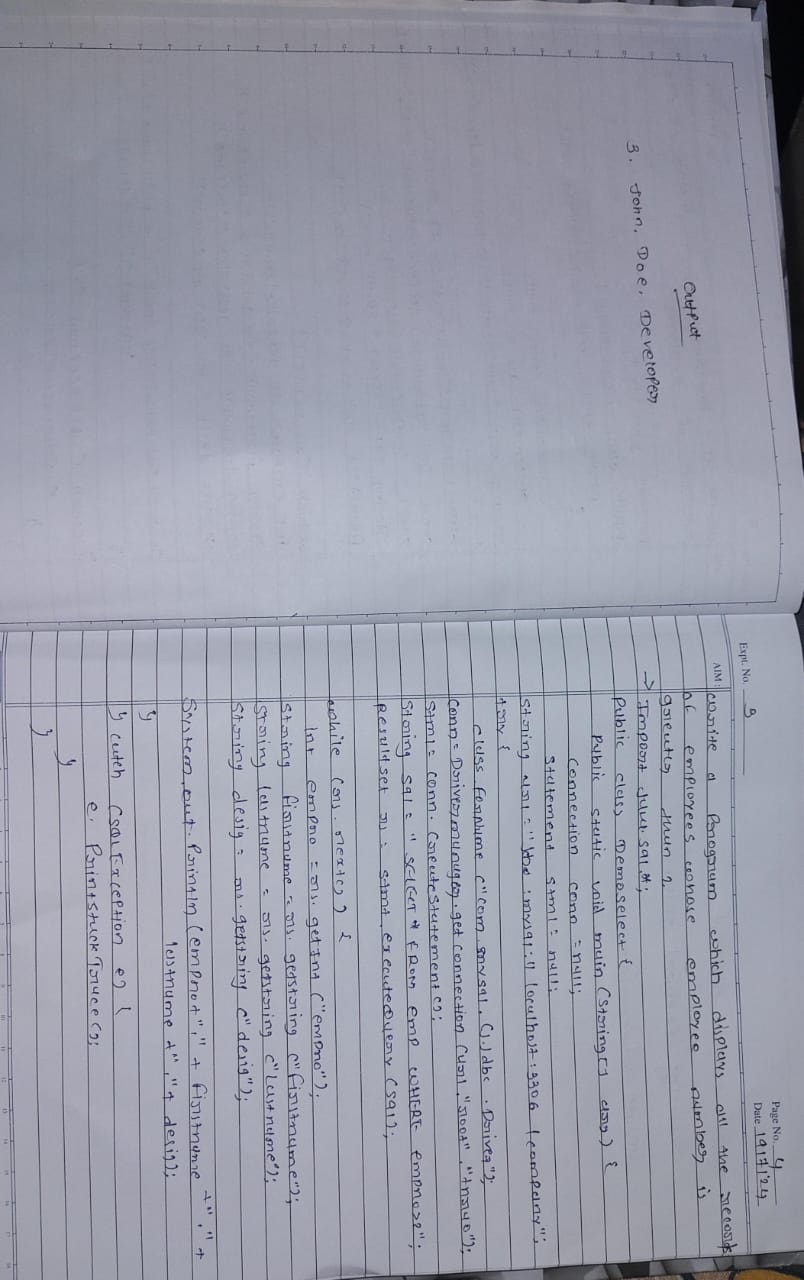 Output
3. John, Doe, Developer
Expt. No. 3
Page No. 4
Date 19/7/24
AIM: write a Program which displays all the records
of employees whose employee number is
greater than 2.
→ Import java.sql.*;
Public class Demoselect {
Public static void main (String[] args) {
Connection conn = null;
Statement stml = null;
String url = "jdbc:mysql:// localhost:3306 /company";
try {
class forName ("com.mysql.cj.jdbc.Driver");
Conn = Drivermanager.get connection (url, "root",
Stml = conn. CreateStatement();
String sql = "SELECT * FROM emp WHERE empno>2";
Resuldset rs = stmt.executeQuery (sql);
while (rs. next()) {
Int empno = rs. getInt ("empno");
String firstname = rs. getstring ("firstname");
String lastname = rs. getstring ("lastname");
String desig = rs. getstring ("desig");
System.out. Println (empno+"," + firstname +"," +
lastname +","+ desig);
}
} catch (SQLException e) {
e. PrintstackTrace();
}
}